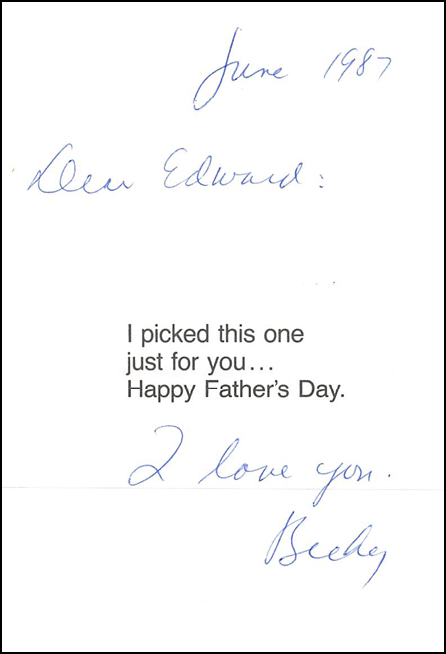 June 1987
Dear Edward:
I picked this one
just for you...
Happy Father's Day.
I love you.
Becky